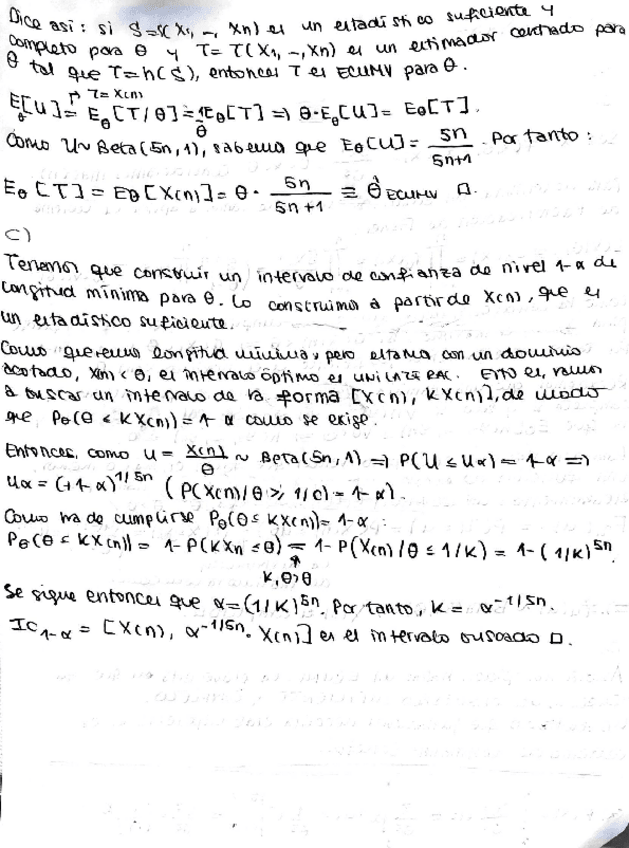 Dice así: si S=S(X1, –, Xn) es un estadístico suficiente y
completo para θ y T= T(X1, –, Xn) es un estimador centrado para
θ tal que T=h(S), entonces T es ECUMV para θ.
T= X(n)
Eθ[U] = Eθ[T/θ] = 1/θ Eθ[T] ⇒ θ·Eθ[U] = Eθ[T].
Como U~ Beta(5n,1), sabemos que Eθ[U] = 5n/5n+1. Por tanto:
Eθ[T] = Eθ[X(n)] = θ· 5n/5n+1 ≡ θ̂ ECUMV □.
C)
Tenemos que construir un intervalo de confianza de nivel 1-α de
longitud mínima para θ. Lo construimos a partir de X(n), que es
un estadístico suficiente.
Como queremos longitud mínima, pero estamos con un dominio
acotado, X(n) < θ, el intervalo óptimo es UNILATERAL. Esto es, vamos
a buscar un intervalo de la forma [X(n), KX(n)], de modo
que Pθ(θ ≤ KX(n)) = 1-α como se exige.
Entonces, como U = X(n)/θ ~ Beta(5n,1) ⇒ P(U ≤ Uα) = 1-α ⇒
Uα = (1-α)^1/5n (P(X(n)/θ ≥ 1/c) = 1-α).
Como ha de cumplirse Pθ(θ ≤ KX(n)) = 1-α:
Pθ(θ ≤ KX(n)) = 1-P(KXn ≤ θ) = 1-P(X(n)/θ ≤ 1/K) = 1-(1/K)^5n.
K,θ>0
Se sigue entonces que α=(1/K)^5n. Por tanto, K = α^-1/5n.
IC1-α = [X(n), α^-1/5n · X(n)] es el intervalo buscado □.